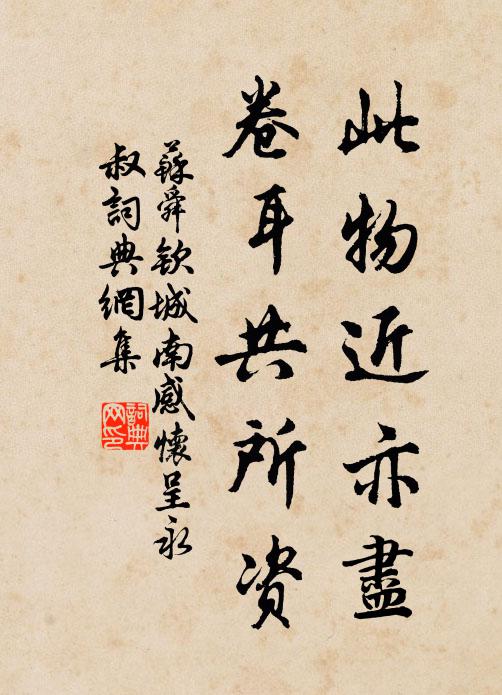 此物近亦盡
卷耳共所资
蘇舜欽城南感懷呈永
叔詞典網集
詞典
网印